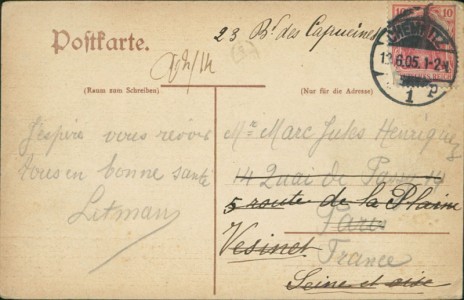 23 Bd des Capucines
Postkarte.
(Raum zum Schreiben.)
(Nur für die Adresse)
10 10
CHEMNITZ
.6.05. 1-2
1
J'espère vous revoir
tous en bonne santé
Litman
Mr Marc Jules Henriquez
14 Quai de Passy 14
5 route de la Plaine
Paris
Vesinet
France
Seine et oise